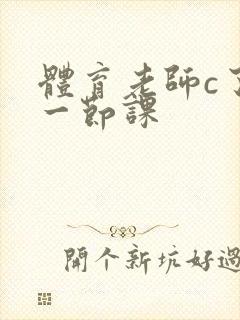 體育老師c了
一節課
開個新坑好過